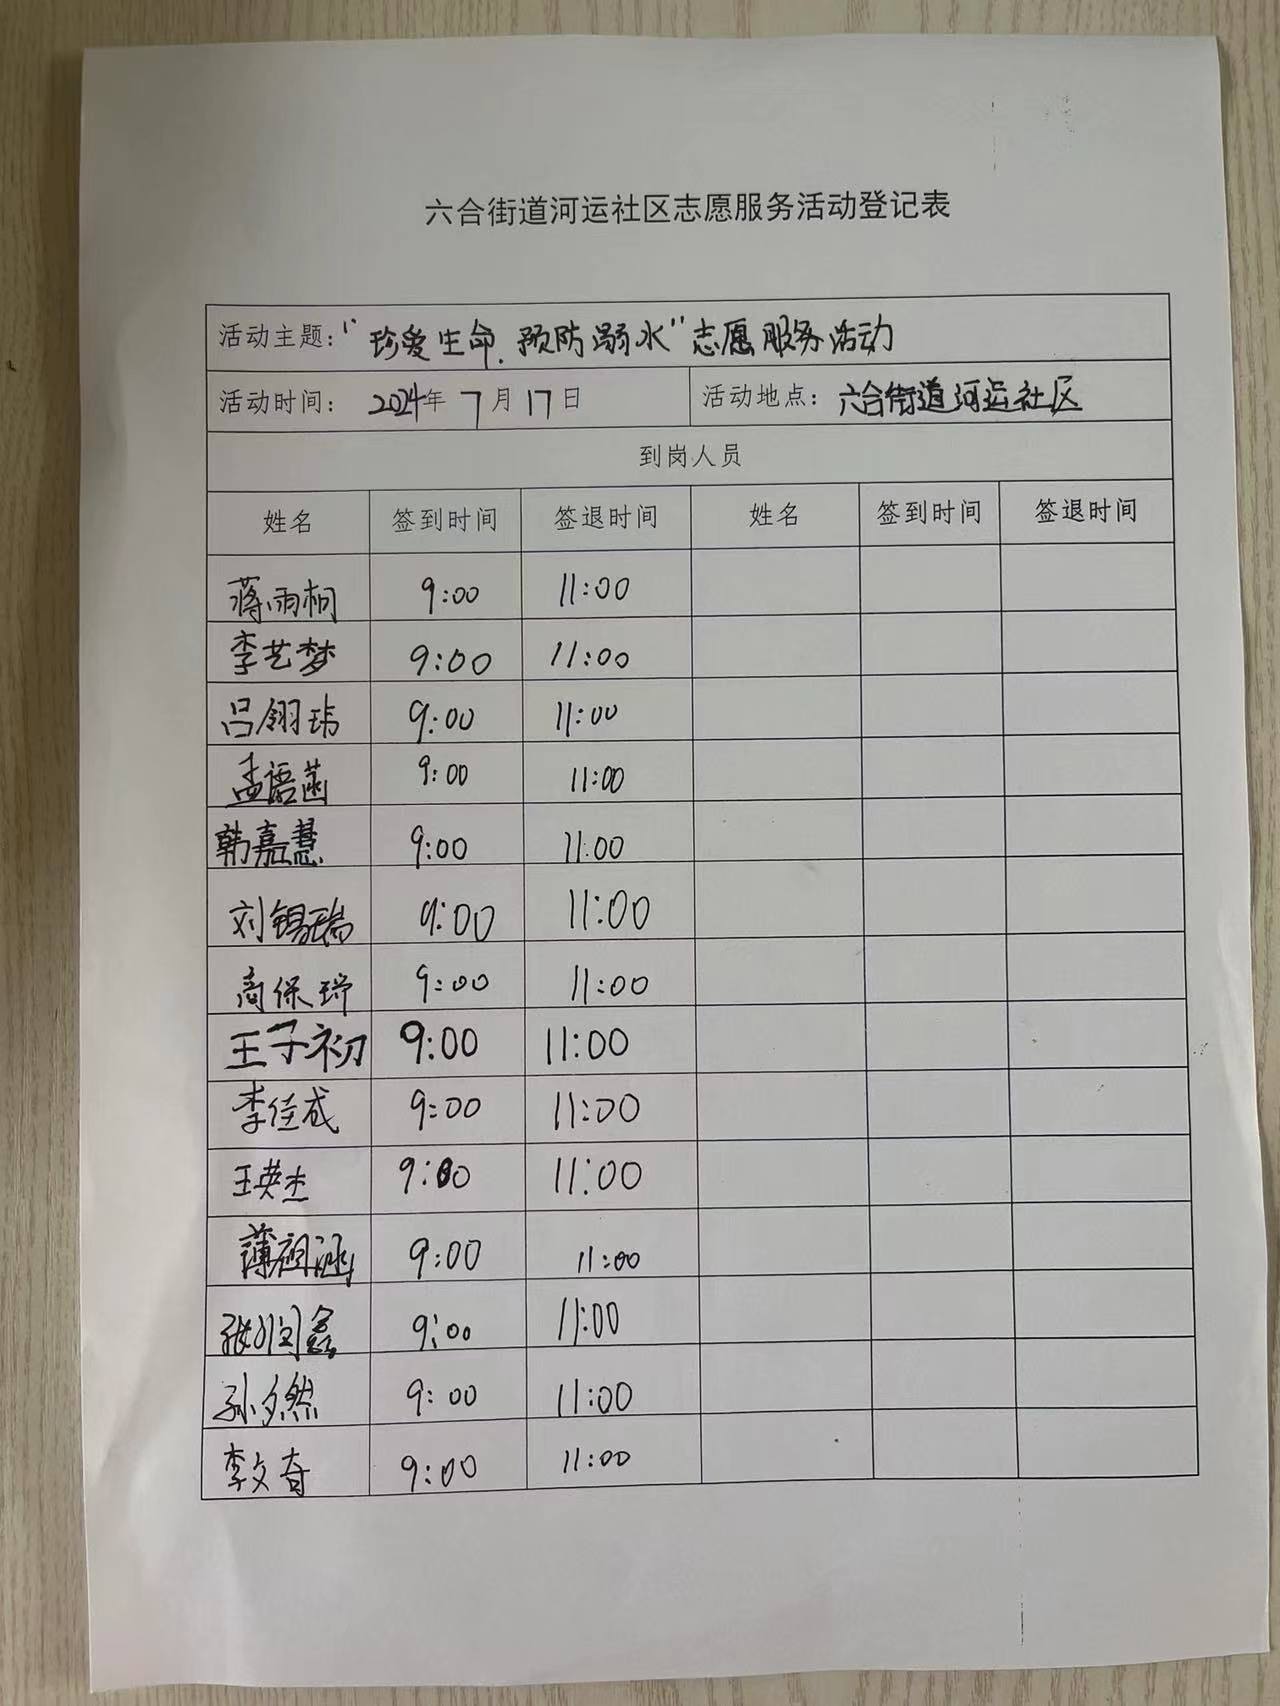 六合街道河运社区志愿服务活动登记表
活动主题：“珍爱生命.预防溺水”志愿服务活动
活动时间： 2024年 7月 17日 活动地点：六合街道河运社区
到岗人员
姓名 签到时间 签退时间 姓名 签到时间 签退时间
蒋雨桐 9:00 11:00
李艺梦 9:00 11:00
吕翎玮 9:00 11:00
孟语菡 9:00 11:00
韩嘉慧 9:00 11:00
刘锡瑞 9:00 11:00
商保琦 9:00 11:00
王子初 9:00 11:00
李佳成 9:00 11:00
王英杰 9:00 11:00
薄涵 9:00 11:00
张润鑫 9:00 11:00
孙夕然 9:00 11:00
李文奇 9:00 11:00